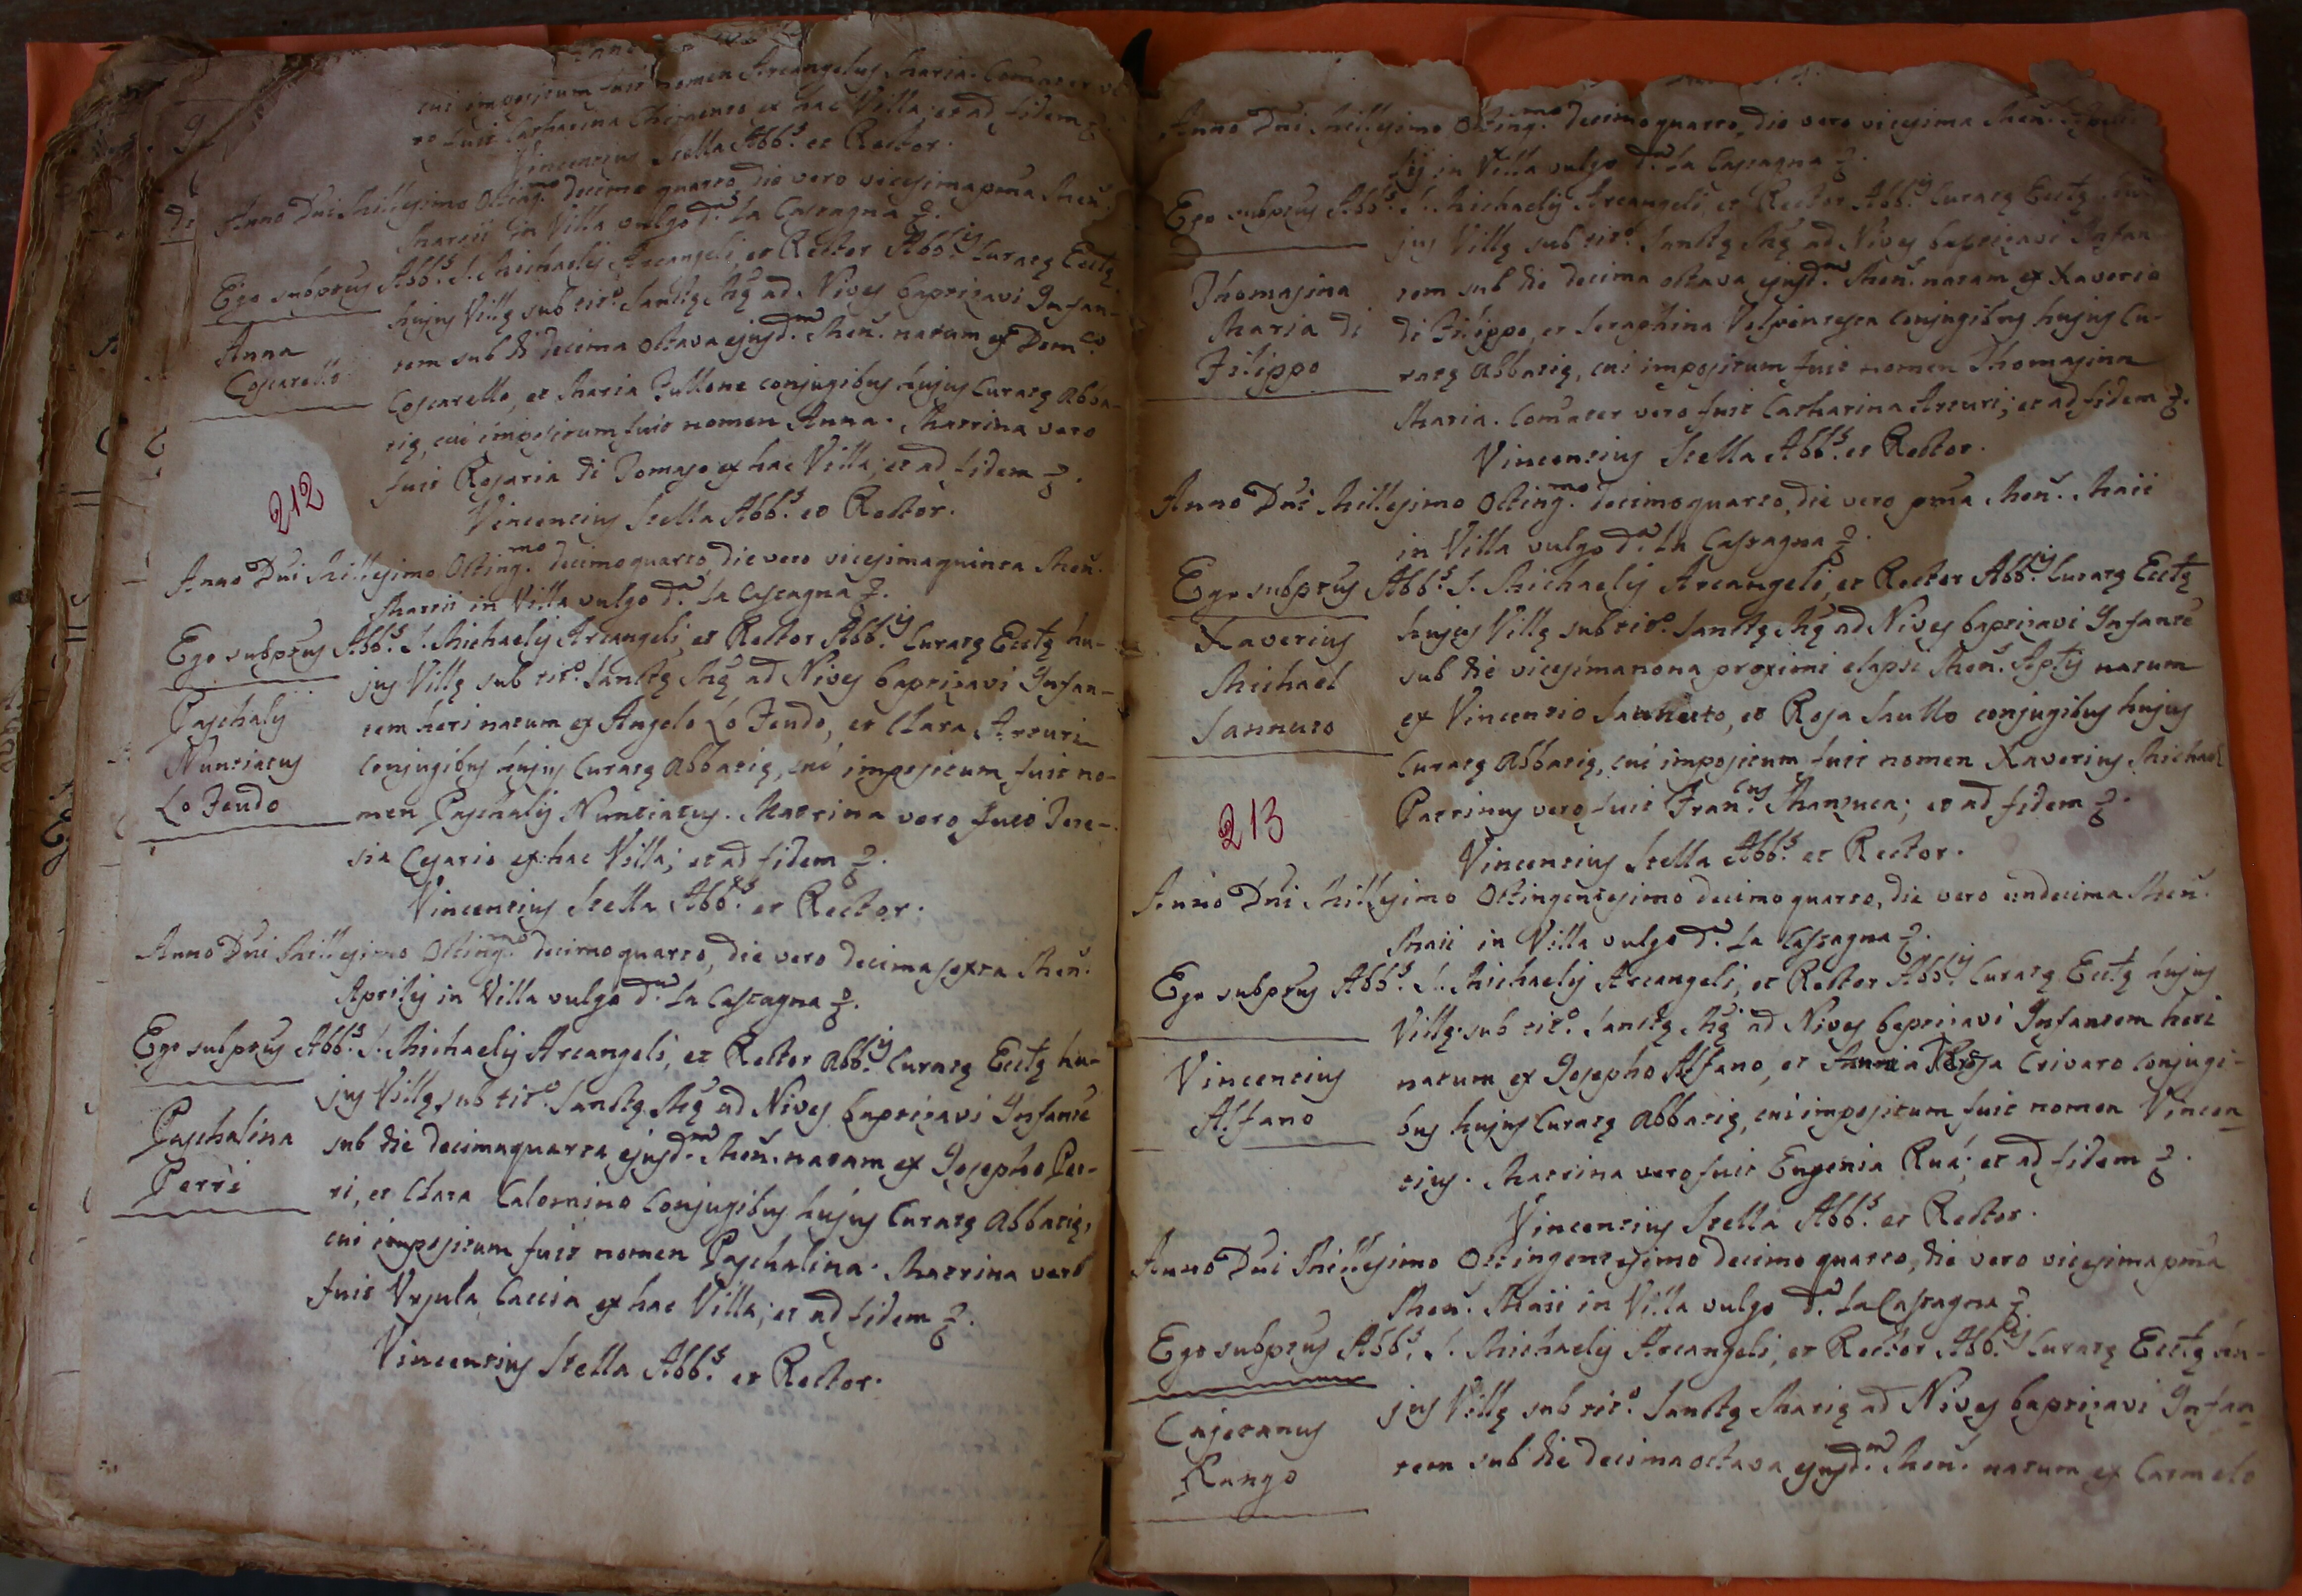 cui impositum fuit nomen Arcangelus Maria. Com̄ater ve
ro fuit Catharina Chimento ex hac Villa; et ad fidem &.
Vincentius Stella Abb.s et Rector.
Anno Dn̄i Millesimo Octing.mo decimo quarto, die vero vicesima pm̄a Men.
Martii in Villa vulgo d.a La Castagna &.
Ego subp̄tus Abb.s S. Michaelis Arcangeli, et Rector Abb.is Curatę Eccl̄ę
hujus Villę sub tit.o Sanctę M̄ę ad Nives baptizavi Infan-
tem sub di decima octava ejusd.m Men. natam ex Dom.co
Coscarello, et Maria Fullone conjugibus hujus Curatę Abba-
tię, cui impositum fuit nomen Anna. Matrina vero
fuit Rosaria di Tomaso ex hac Villa; et ad fidem &.
Vincentius Stella Abb.s et Rector.
Anna
Coscarello
212
Anno Dn̄i Millesimo Octing.mo decimoquarto, die vero vicesimaquinta Men.
Martii in Villa vulgo d.a La Castagna &.
Ego subp̄tus Abb.s S. Michaelis Arcangeli, et Rector Abb.is Curatę Eccl̄ę hu-
jus Villę sub tit.o Sanctę M̄ę ad Nives baptizavi Infan-
tem heri natum ex Angelo Lo Feudo, et Clara Arturi
conjugibus hujus Curatę Abbatię, cui impositum fuit no-
men Paschalis Nuntiatus. Matrina vero fuit Tere-
sia Cesario ex hac Villa; et ad fidem &.
Vincentius Stella Abb.s et Rector.
Paschalis
Nuntiatus
Lo Feudo
Anno Dn̄i Millesimo Octing.mo decimoquarto, die vero decimasexta Men.
Aprilis in Villa vulgo d.a La Castagna &.
Ego subp̄tus Abb.s S. Michaelis Arcangeli, et Rector Abb.is Curatę Eccl̄ę hu-
jus Villę sub tit.o Sanctę M̄ę ad Nives baptizavi Infantē
sub die decimaquarta ejusd.m Men. natam ex Josepho Per-
ri, et Clara Calomino conjugibus hujus Curatę Abbatię,
cui impositum fuit nomen Paschalina. Matrina vero
fuit Ursula Caccia ex hac Villa; et ad fidem &.
Vincentius Stella Abb.s et Rector.
Paschalina
Perri
Anno Dn̄i Millesimo Octing.mo decimoquarto, die vero vicesima Men.
lis in Villa vulgo d.a La Castagna &.
Ego subp̄tus Abb.s S. Michaelis Arcangeli, et Rector Abb.is Curatę Eccl̄ę hu-
jus Villę sub tit.o Sanctę M̄ę ad Nives baptizavi Infan
tem sub die decima octava ejusd.m Men. natam ex Xaverio
di Filippo, et Seraphina Volpintesta conjugibus hujus Cu-
ratę Abbatię, cui impositum fuit nomen Thomasina
Maria. Com̄ater vero fuit Catharina Arturi; et ad fidem &.
Vincentius Stella Abb.s et Rector.
Thomasina
Maria di
Filippo
Anno Dn̄i Millesimo Octing.mo decimoquarto, die vero pm̄a Men. Maii
in Villa vulgo d.a La Castagna &.
Ego subp̄tus Abb.s S. Michaelis Arcangeli, et Rector Abb.is Curatę Eccl̄ę
hujus Villę sub tit.o Sanctę M̄ę ad Nives baptizavi Infantē
sub die vicesimanona proximi elapsi Men. Ap̄lis natum
ex Vincentio Sannuto, et Rosa Saullo conjugibus hujus
Curatę Abbatię, cui impositum fuit nomen Xaverius Michael
Patrinus vero fuit Fran.cus Manzuca; et ad fidem &.
Vincentius Stella Abb.s et Rector.
Xaverius
Michael
Sannuto
213
Anno Dn̄i Millesimo Octingentesimo decimo quarto, die vero undecima Men.
Maii in Villa vulgo d.a La Castagna &.
Ego subp̄tus Abb.s S. Michaelis Arcangeli, et Rector Abb.is Curatę Eccl̄ę hujus
Villę sub tit.o Sanctę M̄ę ad Nives baptizavi Infantem heri
natum ex Josepho Alfano, et Rosa Crivaro conjugi-
bus hujus Curatę Abbatię, cui impositum fuit nomen Vincen
tius. Matrina vero fuit Eugenia Ruá; et ad fidem &.
Vincentius Stella Abb.s et Rector.
Vincentius
Alfano
Anno Dn̄i Millesimo Octingentesimo decimo quarto, die vero vicesima pm̄a
Men. Maii in Villa vulgo d.a La Castagna &.
Ego subp̄tus Abb.s S. Michaelis Arcangeli, et Rector Abb.is Curatę Eccl̄ę hu-
jus Villę sub tit.o Sanctę Marię ad Nives baptizavi Infan
tem sub die decima octava ejusd.m Men. natum ex Carmelo
Cajetanus
Rango